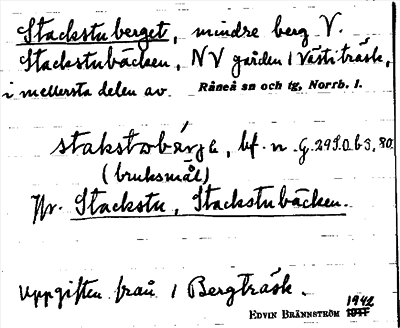 Stackstuberget, mindre berg V.
Stackstubäcken, NV gården 1 Västiträsk,
i mellersta delen av. Råneå sn och tg, Norrb. l.
stakstobærje, bf. n. G. 29 S.O. b 3, 80.
(bruksmål)
Jfr. Stackstu, Stackstubäcken.
Uppgiften från 1 Bergträsk.
1942
EDVIN BRÄNNSTRÖM 1941